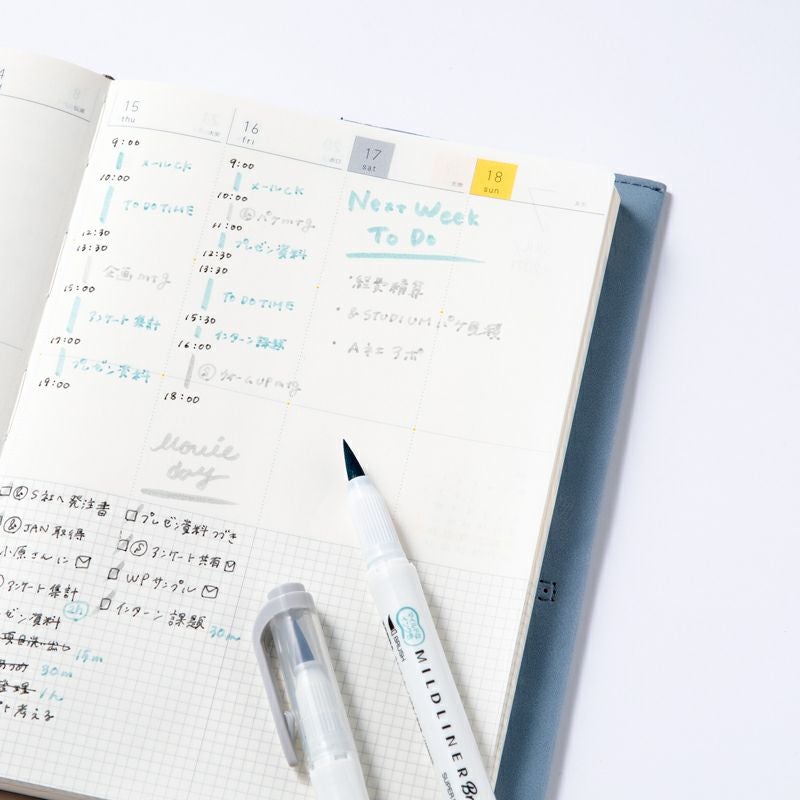 15
thu
9:00
メールCK
10:00
TO DO TIME
12:30
13:30
企画 mtg
15:00
アンケート集計
17:00
プレゼン資料
19:00
16
fri
9:00
メールCK
10:00
パケmtg
11:00
プレゼン資料
12:30
13:30
TO DO TIME
15:30
インターン課題
16:00
ウォームUP mtg
18:00
Movie
day
17
sat
18
sun
Next Week
To Do
・経費精算
・& STUDIUM パケ見積
・A社アポ
S社へ発注書
JAN取得
小原さんに
アンケート集計
ゼン資料 2h
15m
30m
1h
考える
プレゼン資料つづき
アンケート共有
WPサンプル
インターン課題 30m
BRUSH
MILDLINER Br
SUPER